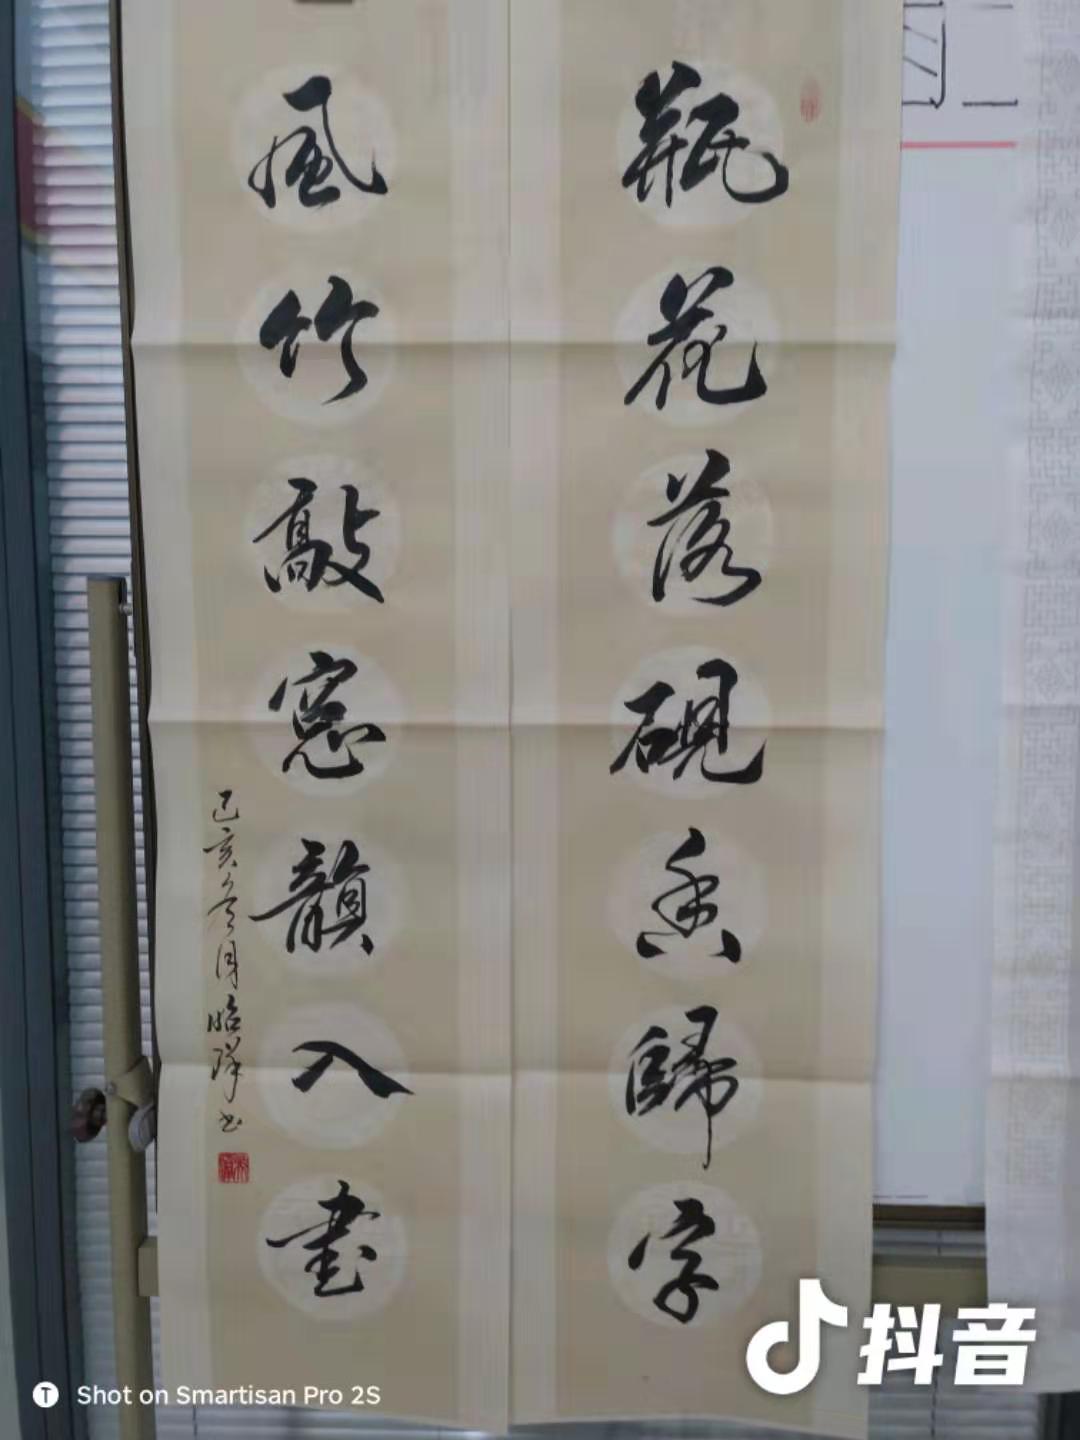 瓶花落硯香歸字
風竹敲窓韻入書
己亥冬月昭祥书
抖音
Shot on Smartisan Pro 2S